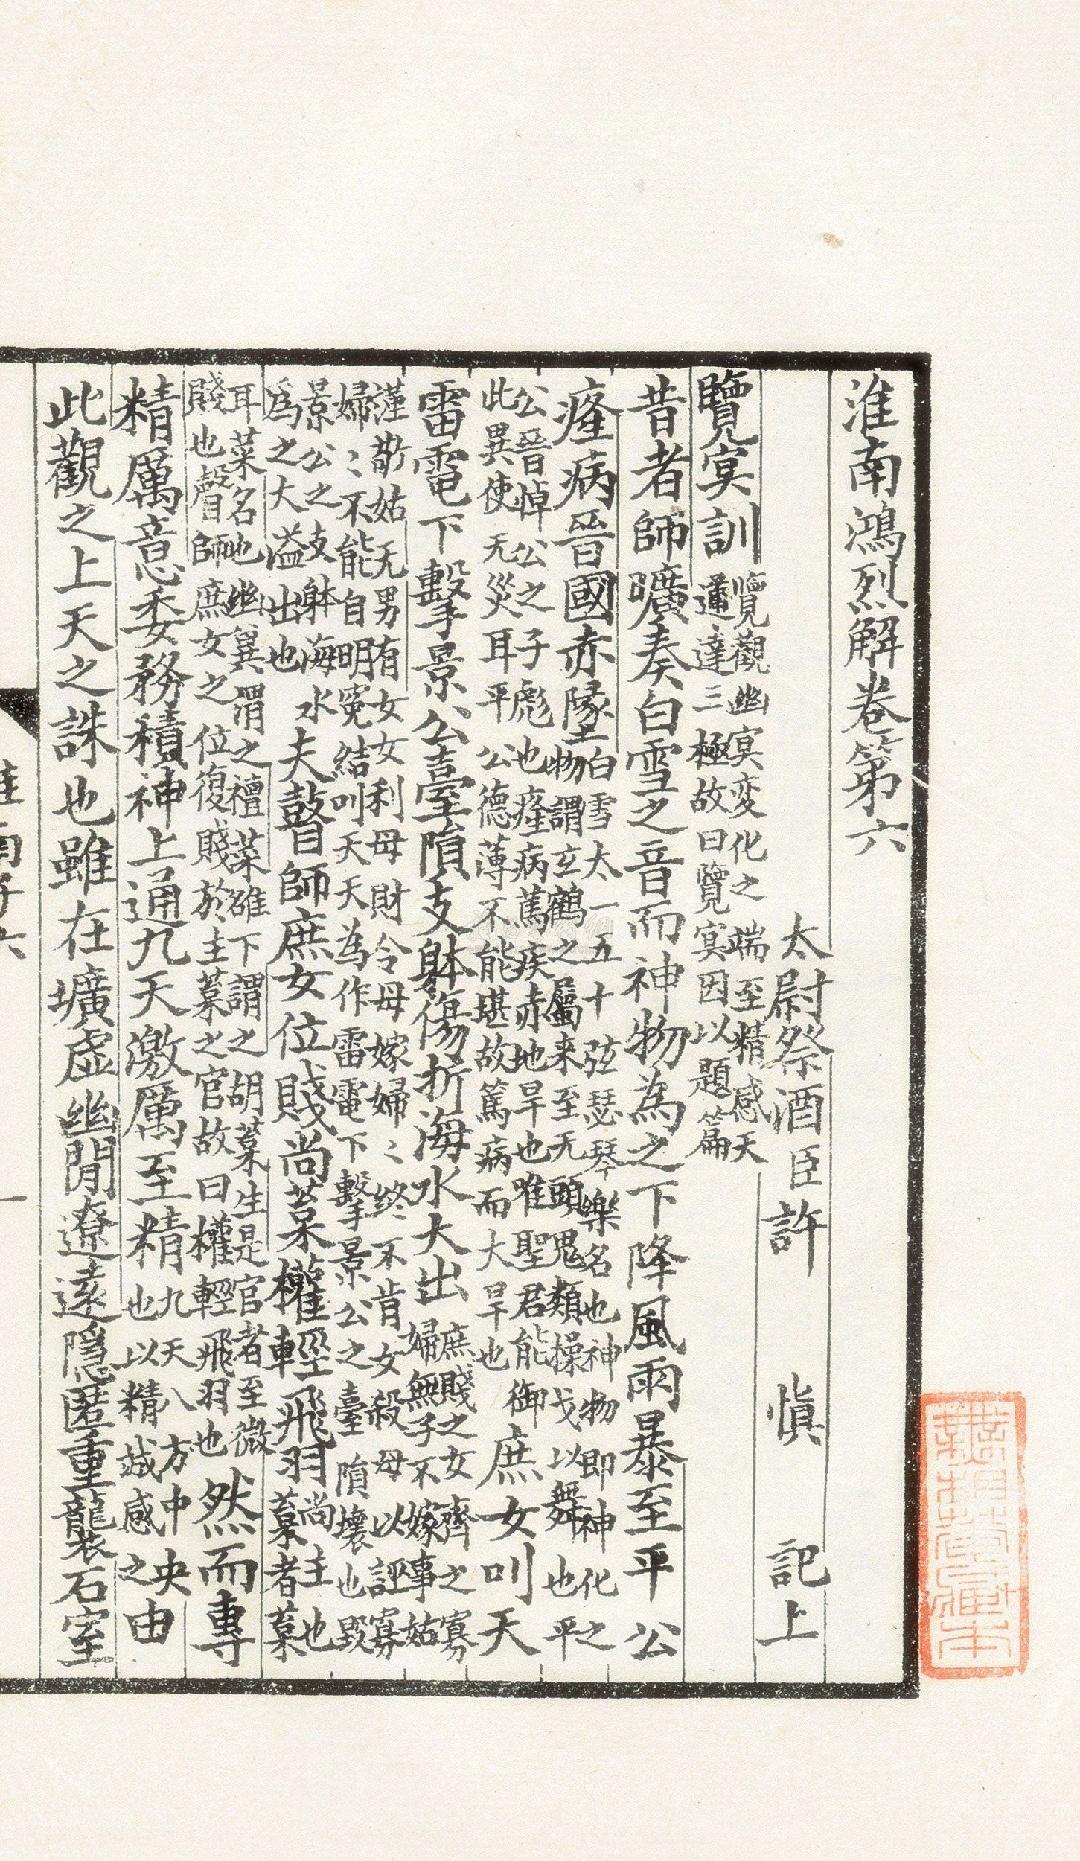 淮南鴻烈解卷第六
太尉祭酒臣許 慎 記上
覽冥訓
覽觀幽冥変化之端至精感天
通達三極故曰覽冥因以題篇
昔者師曠奏白雪之音而神物為之下降風雨暴至平公
癃病晉國赤墬
白雪太一五十弦瑟琴樂名也神物即神化之
物謂玄鶴之屬来至无頭鬼類操戈以舞也平
公晉悼公之子彪也癃病篤疾赤地旱也唯聖君能御
此異使无災耳平公德薄不能堪故篤病而大旱也
庶女叫天
雷電下擊景公臺隕支躰傷折海水大出
庶賤之女齊之寡
婦無子不嫁事姑
謹敬姑无男有女女利母財令母嫁婦〻終不肯女殺母以誣寡
婦〻不能自明冤結叫天天為作雷電下擊景公之臺隕壞也毀
景公之支躰海水
為之大溢出也
夫瞽師庶女位賤尚菒權輕飛羽
尚主也
菒者菒
耳菜名也幽冀謂之檀菜雒下謂之胡菒生是官者至微
賤也瞽師庶女之位復賤於主菒之官故曰權輕飛羽也
然而專
精厲意委務積神上通九天激厲至精
九天八方中央
也以精誠感之
由
此觀之上天之誅也雖在壙虛幽閒遼遠隱匿重襲石室
淮南子六
一